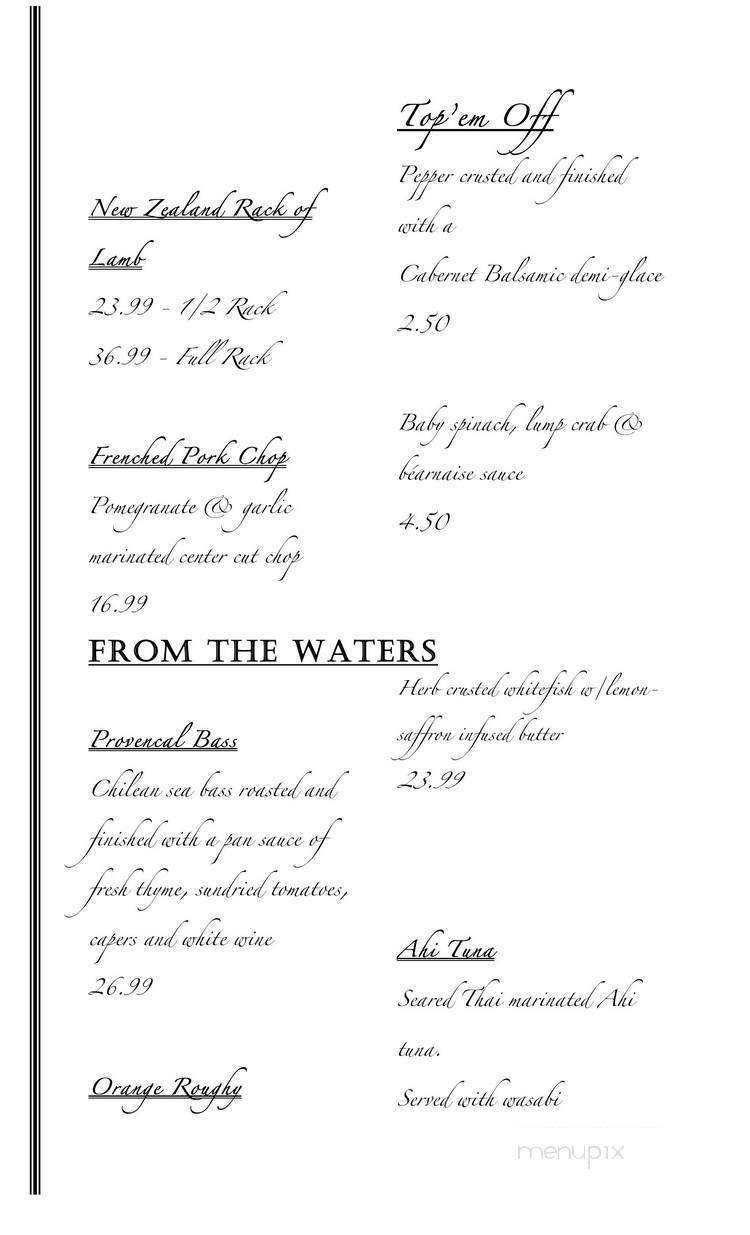 New Zealand Rack of
Lamb
23.99 - 1/2 Rack
36.99 - Full Rack
Frenched Pork Chop
Pomegranate & garlic
marinated center cut chop
16.99
Top'em Off
Pepper crusted and finished
with a
Cabernet Balsamic demi-glace
2.50
Baby spinach, lump crab &
béarnaise sauce
4.50
FROM THE WATERS
Provencal Bass
Chilean sea bass roasted and
finished with a pan sauce of
fresh thyme, sundried tomatoes,
capers and white wine
26.99
Orange Roughy
Herb crusted whitefish w/lemon-
saffron infused butter
23.99
Ahi Tuna
Seared Thai marinated Ahi
tuna.
Served with wasabi
menupix